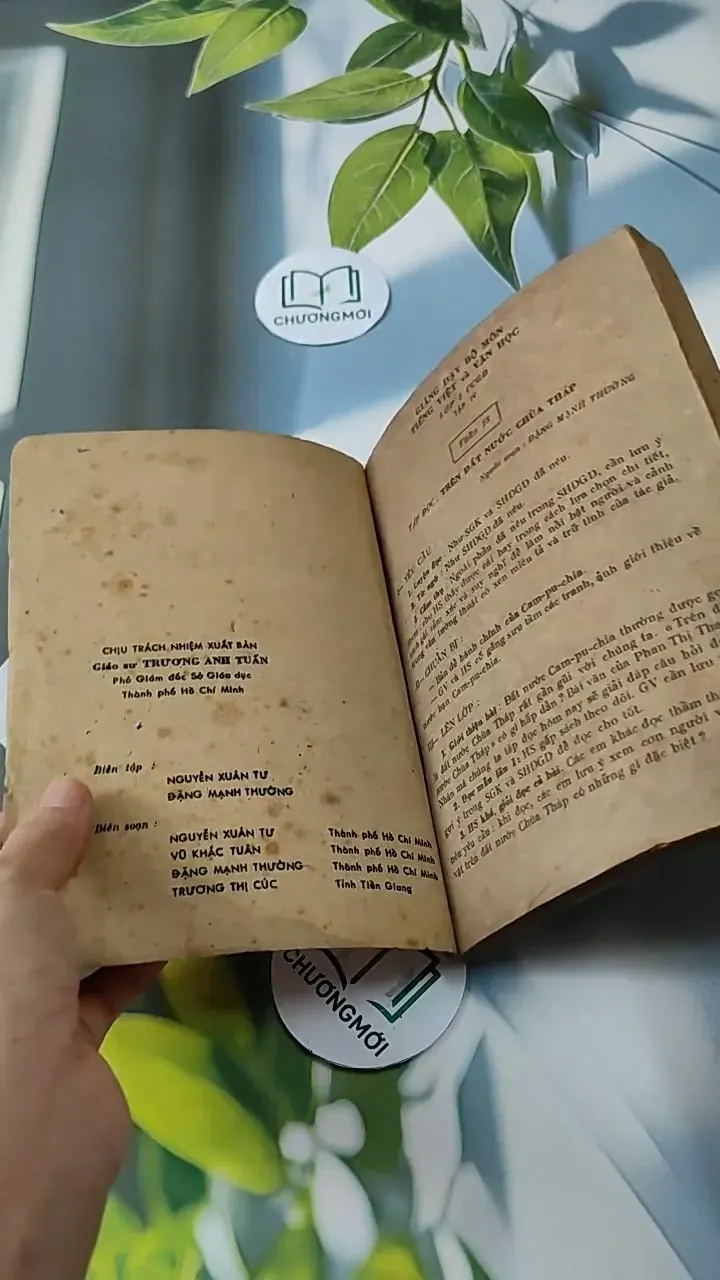 CHƯƠNGMỚI
CHỊU TRÁCH NHIỆM XUẤT BẢN
Giáo sư TRƯƠNG ANH TUẤN
Phó Giám đốc Sở Giáo dục
Thành phố Hồ Chí Minh
Biên tập :
NGUYỄN XUÂN TƯ
ĐẶNG MẠNH THƯỜNG
Biên soạn :
NGUYỄN XUÂN TƯ Thành phố Hồ Chí Minh
VŨ KHẮC TUÂN Thành phố Hồ Chí Minh
ĐẶNG MẠNH THƯỜNG Thành phố Hồ Chí Minh
TRƯƠNG THỊ CÚC Tỉnh Tiền Giang
GIẢNG DẠY BỘ MÔN
TIẾNG VIỆT và VĂN HỌC
CCGD
TẬP IV
TẬP ĐỌC: TRÊN ĐẤT NƯỚC CHÙA THÁP
Người soạn: ĐẶNG MẠNH THƯỜNG
I— YÊU CẦU:
1. Luyện đọc: Như SGK và SHDGD đã nêu.
2. Từ ngữ: Như SHDGD đã nêu.
3. Cảm thụ: Ngoài phần đã nêu trong SHDGD, cần lưu ý
thêm: cho HS thấy được cái hay trong cách lựa chọn chi tiết,
cảm xúc và suy nghĩ để làm nổi bật người và cảnh
trong văn tường thuật có xen miêu tả và trữ tình của tác giả.
II— CHUẨN BỊ:
— Bản đồ hành chính của Cam-pu-chia.
— GV và HS cố gắng sưu tầm các tranh, ảnh giới thiệu về
nước bạn Cam-pu-chia.
III— LÊN LỚP:
1. Giới thiệu bài: Đất nước Cam-pu-chia thường được gọi
là đất nước Chùa Tháp rất gần gũi với chúng ta. « Trên đ
nước Chùa Tháp » có gì hấp dẫn? Bài văn của Phan Thị Tha
Nhàn mà chúng ta tập đọc hôm nay sẽ giải đáp câu hỏi đ
2. Đọc mẫu lần 1: HS gấp sách theo dõi. GV cần lưu
gợi ý trong SGK và SHDGD để đọc cho tốt.
3. HS khá, giỏi đọc cả bài. Các em khác đọc thầm th
nêu yêu cầu: khi đọc, các em lưu ý xem con người v
vật trên đất nước Chùa Tháp có những gì đặc biệt?
CHƯƠNGMỚI